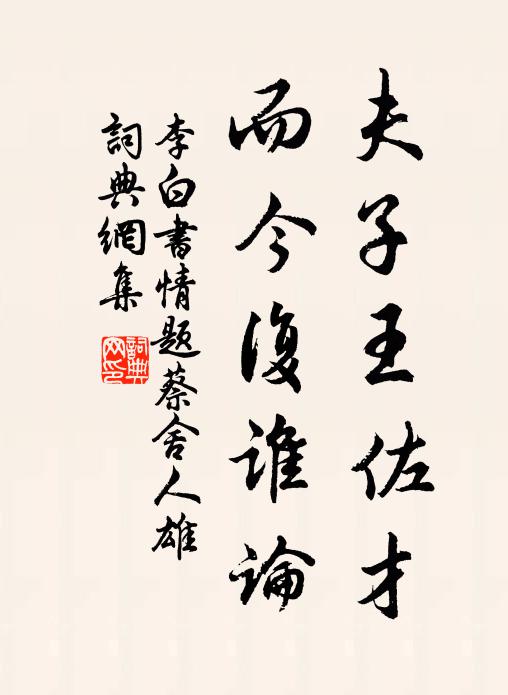 夫子王佐才
而今復誰論
李白書情題蔡舍人雄
詞典網集
詞典網印